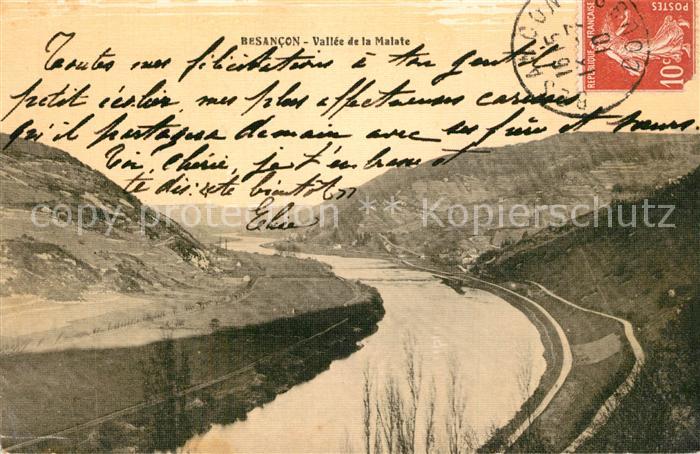 BESANÇON - Vallée de la Malate
Toutes mes félicitations à ton gentil
petit écolier, mes plus affectueuses caresses
qu'il partagera demain avec ses frère et sœurs.
Toi, chérie, je t'embrasse et
te dis: à bientôt
Elise
REPUBLIQUE FRANÇAISE
POSTES
10c
BESANÇON
DOUBS
copy protection ** Kopierschutz